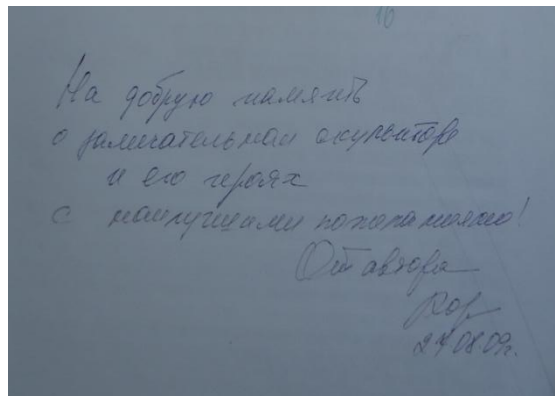 10
На добрую память
о замечательном скульпторе
и его героях
с наилучшими пожеланиями!
От автора
27.08.09г.